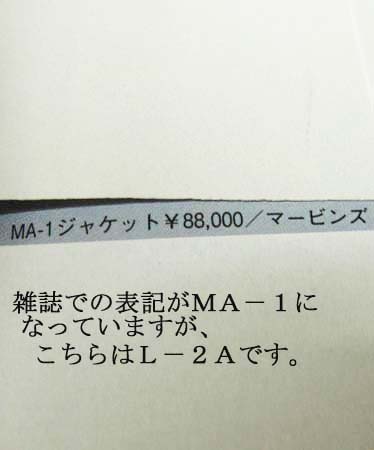 MA-1ジャケット￥88,000／マービンズ
雑誌での表記がＭＡ－１に
なっていますが、
こちらはＬ－２Ａです。